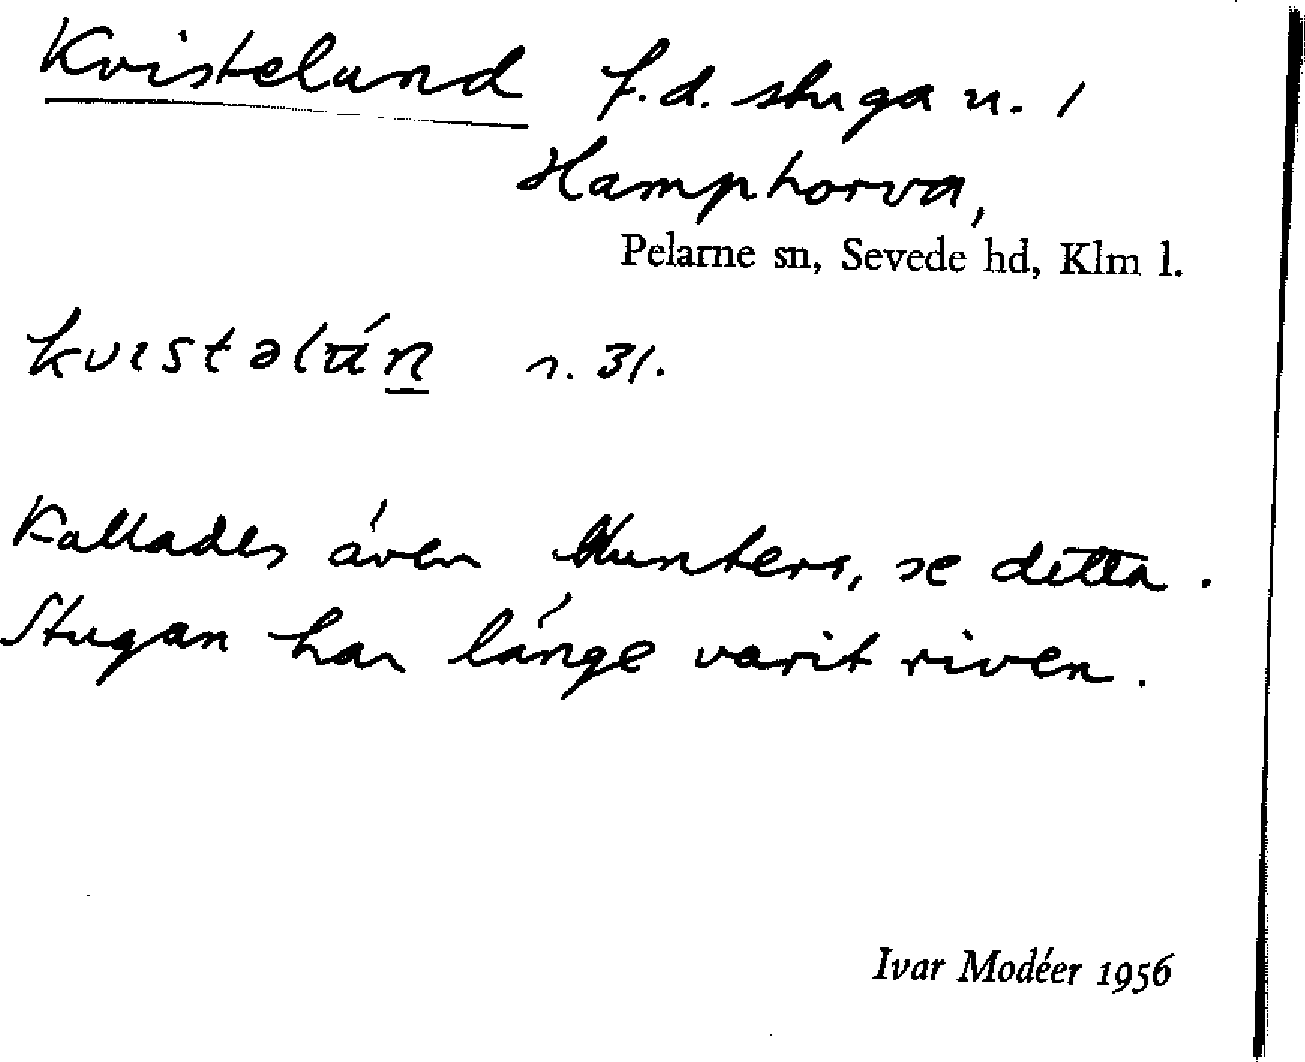 Kvistelund f.d. stuga u. 1
Hamphorva,
Pelarne sn, Sevede hd, Klm l.
kvıstəlún s. 31.
Kallades även Munters, se detta.
Stugan har länge varit riven.
Ivar Modéer 1956